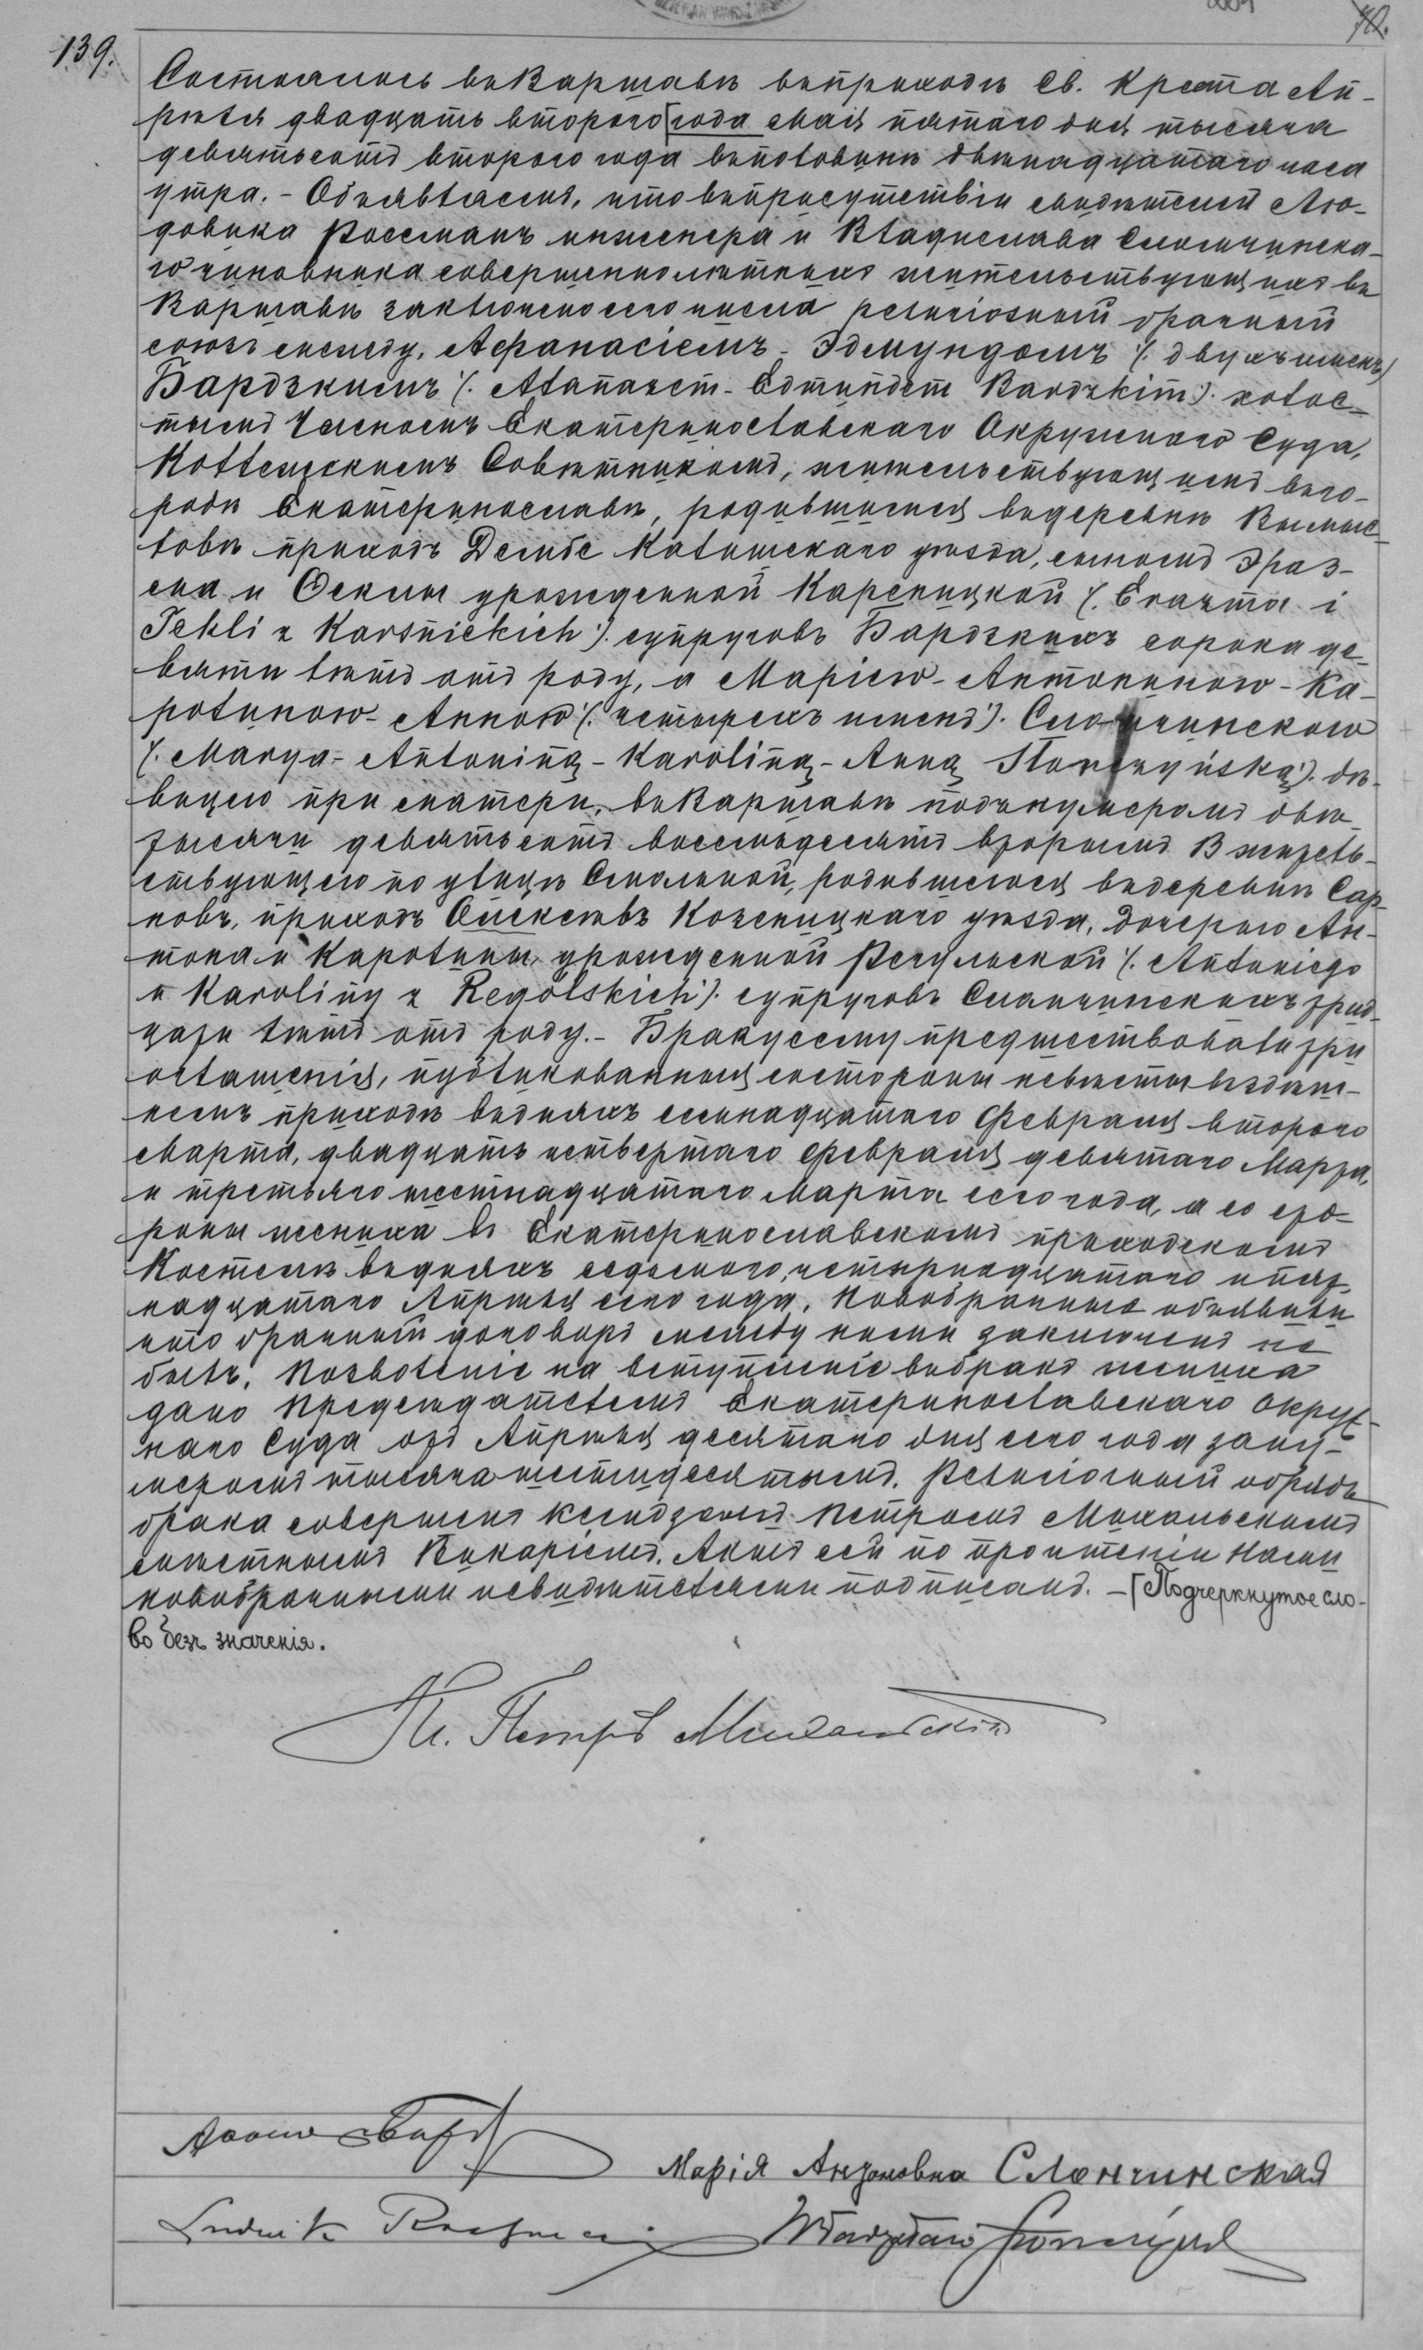 139.
Состоялось въ Варшавѣ въ приходѣ Св. Креста Ап-
рѣля двадцать второго [года Мая пятаго дня тысяча
девятьсотъ второго года въ половинѣ двѣнадцатаго часа
утра. - Объявляемъ, что въ присутствіи свидѣтелей Лю-
довика Россманъ инженера и Владислава Слончинска-
го чиновника совершеннолѣтнихъ жительствующихъ въ
Варшавѣ заключено сего числа религіозный брачный
союзъ между, Афанасіемъ - Эдмундомъ /. двухъ именъ)
Бардзкимъ /. Atanazem - Edmundem Bardzkim ). холос-
тымъ Членомъ Екатеринославскаго Окружнаго Суда,
Коллежскимъ Совѣтникомъ, жительствующимъ въ го-
родѣ Екатеринославѣ, родившимся въ деревнѣ
приходъ Дембе Калишскаго уѣзда, сыномъ Эраз-
ма и Феклы урожденной Карсницкой /. Erazma i
Tekli z Karśnickich ). супруговъ Бардзкихъ сорока де-
вяти лѣтъ отъ роду, а Маріею - Антониною - Ка-
ролиною - Анною /. четырехъ именъ ). Слончинскою
/. Maryą - Antoniną - Karoliną - Anną Słonczyńską ). дѣ-
вицею при матери, въ Варшавѣ подъ нумеромъ двѣ
тысячи девятьсотъ восемьдесятъ вторымъ В жител-
ствующею по улицѣ Смольной, родившеюся въ деревнѣ Сар-
новъ, приходъ Опексѣвъ Козеницкаго уѣзда, дочерью Ан-
тона и Каролины, урожденной Регульской /. Antoniego
и Karoliny z Rególskich ). супруговъ Слончинскихъ трид-
цати лѣтъ отъ роду. - Браку сему предшествовали три
оглашенія, публикованныя со стороны невѣсты въ здѣш-
немъ приходѣ въ дняхъ семнадцатаго Февраля второго
Марта, двадцать четвертаго Февраля девятаго Марта,
и третьяго шестнадцатаго Марта сего года, а со сто-
роны жениха въ Екатеринославскомъ приходскомъ
Костелѣ въ дняхъ седьмого, четырнадцатаго и
надцатаго Апрѣля сего года. Новобрачные объявили
что брачный договоръ между ними заключенъ не
былъ. Позволеніе на вступленіе въ бракъ жениха
дано Предсѣдателемъ Екатеринославскаго Окруж-
наго Суда отъ Апрѣля десятаго дня сего года за ну-
меромъ тысяча шестидесятымъ. Религіозный обрядъ
брака совершенъ Ксендзомъ Петромъ Михальскимъ
мѣстнымъ Викаріемъ. Актъ сей по прочтеніи Нами
новобрачными и свидѣтелями подписанъ. - [Подчеркнутое сло-
во безъ значенія.
Кс. Петръ Михальскій
Марія Антоновна Слончинская
Ludwik Rossman Władysław Słonczyński